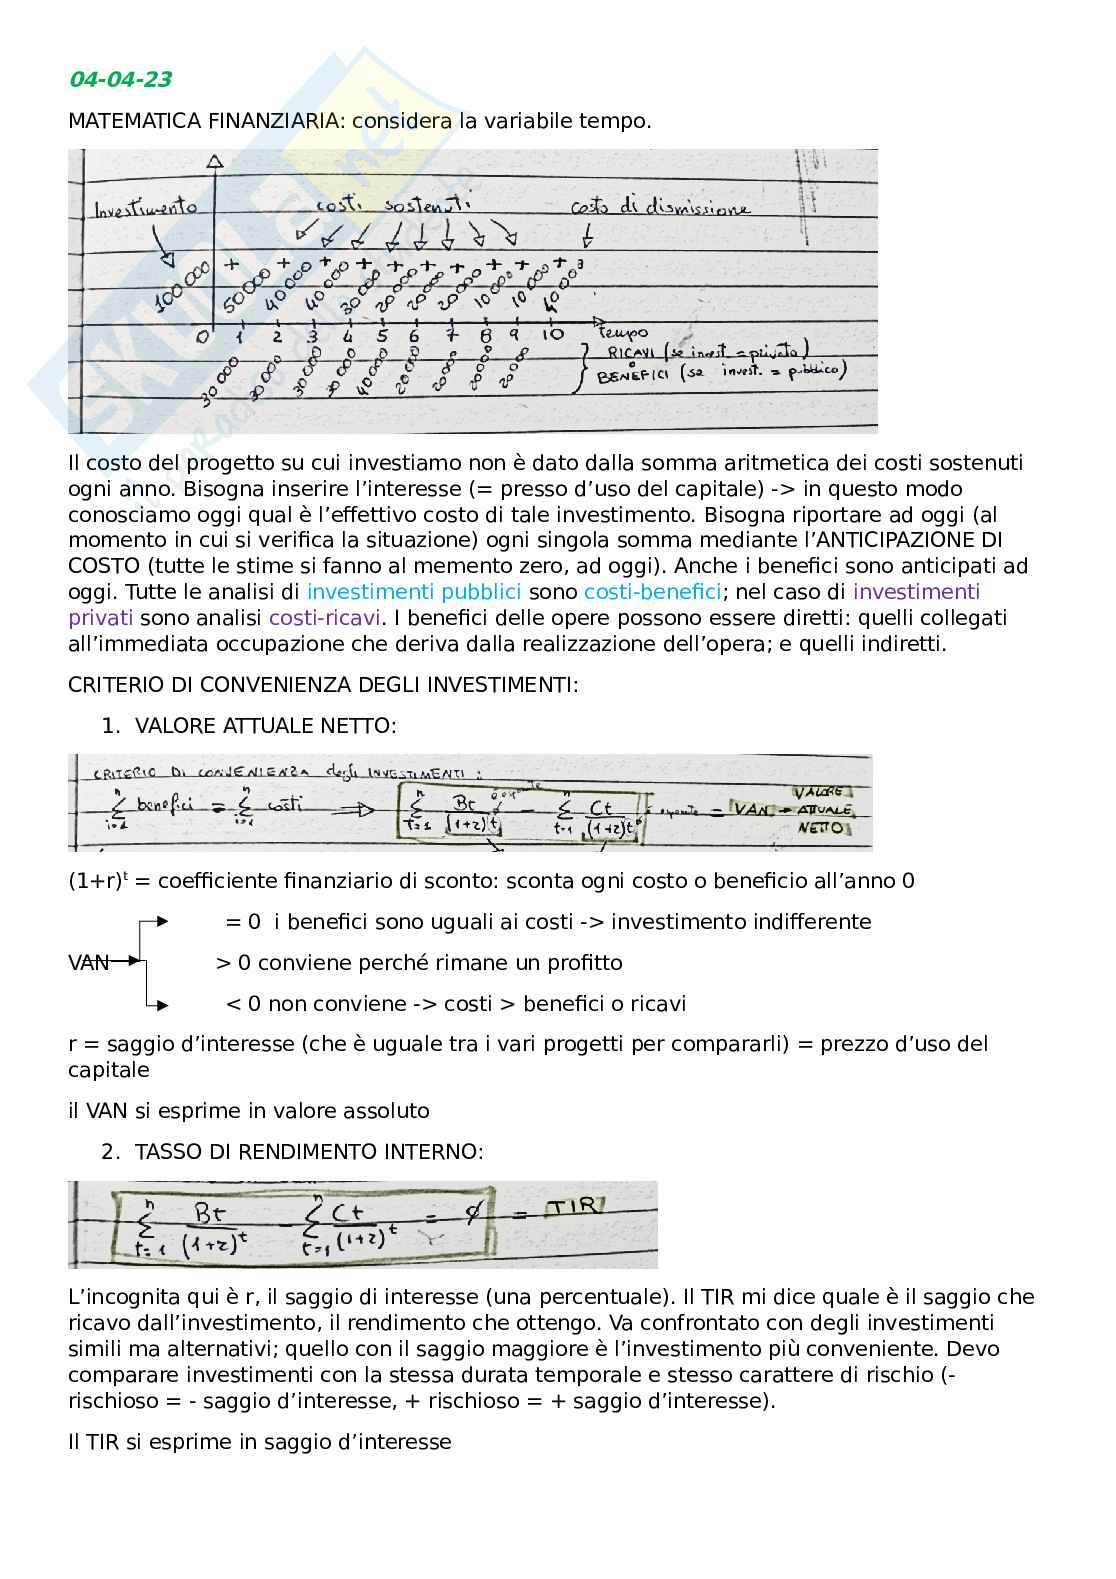 04-04-23
MATEMATICA FINANZIARIA: considera la variabile tempo.
Investimento costi sostenuti costo di dismissione
100 000 + 50000 + 40 000 + 40 000 + 30 000 + 20000 + 20000 + 20000 + 10000 + 10000 +
0 1 2 3 4 5 6 7 8 9 10 tempo
30 000 30 000 30 000 30 000 40 000 20 000 20000 20000 20000
RICAVI (se invest. = privato)
o
BENEFICI (se invest. = pubblico)
Il costo del progetto su cui investiamo non è dato dalla somma aritmetica dei costi sostenuti
ogni anno. Bisogna inserire l’interesse (= presso d’uso del capitale) -> in questo modo
conosciamo oggi qual è l’effettivo costo di tale investimento. Bisogna riportare ad oggi (al
momento in cui si verifica la situazione) ogni singola somma mediante l’ANTICIPAZIONE DI
COSTO (tutte le stime si fanno al memento zero, ad oggi). Anche i benefici sono anticipati ad
oggi. Tutte le analisi di investimenti pubblici sono costi-benefici; nel caso di investimenti
privati sono analisi costi-ricavi. I benefici delle opere possono essere diretti: quelli collegati
all’immediata occupazione che deriva dalla realizzazione dell’opera; e quelli indiretti.
CRITERIO DI CONVENIENZA DEGLI INVESTIMENTI:
1. VALORE ATTUALE NETTO:
CRITERIO DI CONVENIENZA degli INVESTIMENTI:
n ∑ i=1 benefici = n ∑ i=1 costi ⇒ n ∑ t=1 Bt/(1+r)t - n ∑ t=1 Ct/(1+r)t = VAN = VALORE ATTUALE NETTO
(1+r)ᵗ = coefficiente finanziario di sconto: sconta ogni costo o beneficio all’anno 0
= 0 i benefici sono uguali ai costi -> investimento indifferente
VAN > 0 conviene perché rimane un profitto
< 0 non conviene -> costi > benefici o ricavi
r = saggio d’interesse (che è uguale tra i vari progetti per compararli) = prezzo d’uso del
capitale
il VAN si esprime in valore assoluto
2. TASSO DI RENDIMENTO INTERNO:
n ∑ t=1 Bt/(1+r)ᵗ - n ∑ t=1 Ct/(1+r)ᵗ = 0 = TIR
L’incognita qui è r, il saggio di interesse (una percentuale). Il TIR mi dice quale è il saggio che
ricavo dall’investimento, il rendimento che ottengo. Va confrontato con degli investimenti
simili ma alternativi; quello con il saggio maggiore è l’investimento più conveniente. Devo
comparare investimenti con la stessa durata temporale e stesso carattere di rischio (-
rischioso = - saggio d’interesse, + rischioso = + saggio d’interesse).
Il TIR si esprime in saggio d’interesse